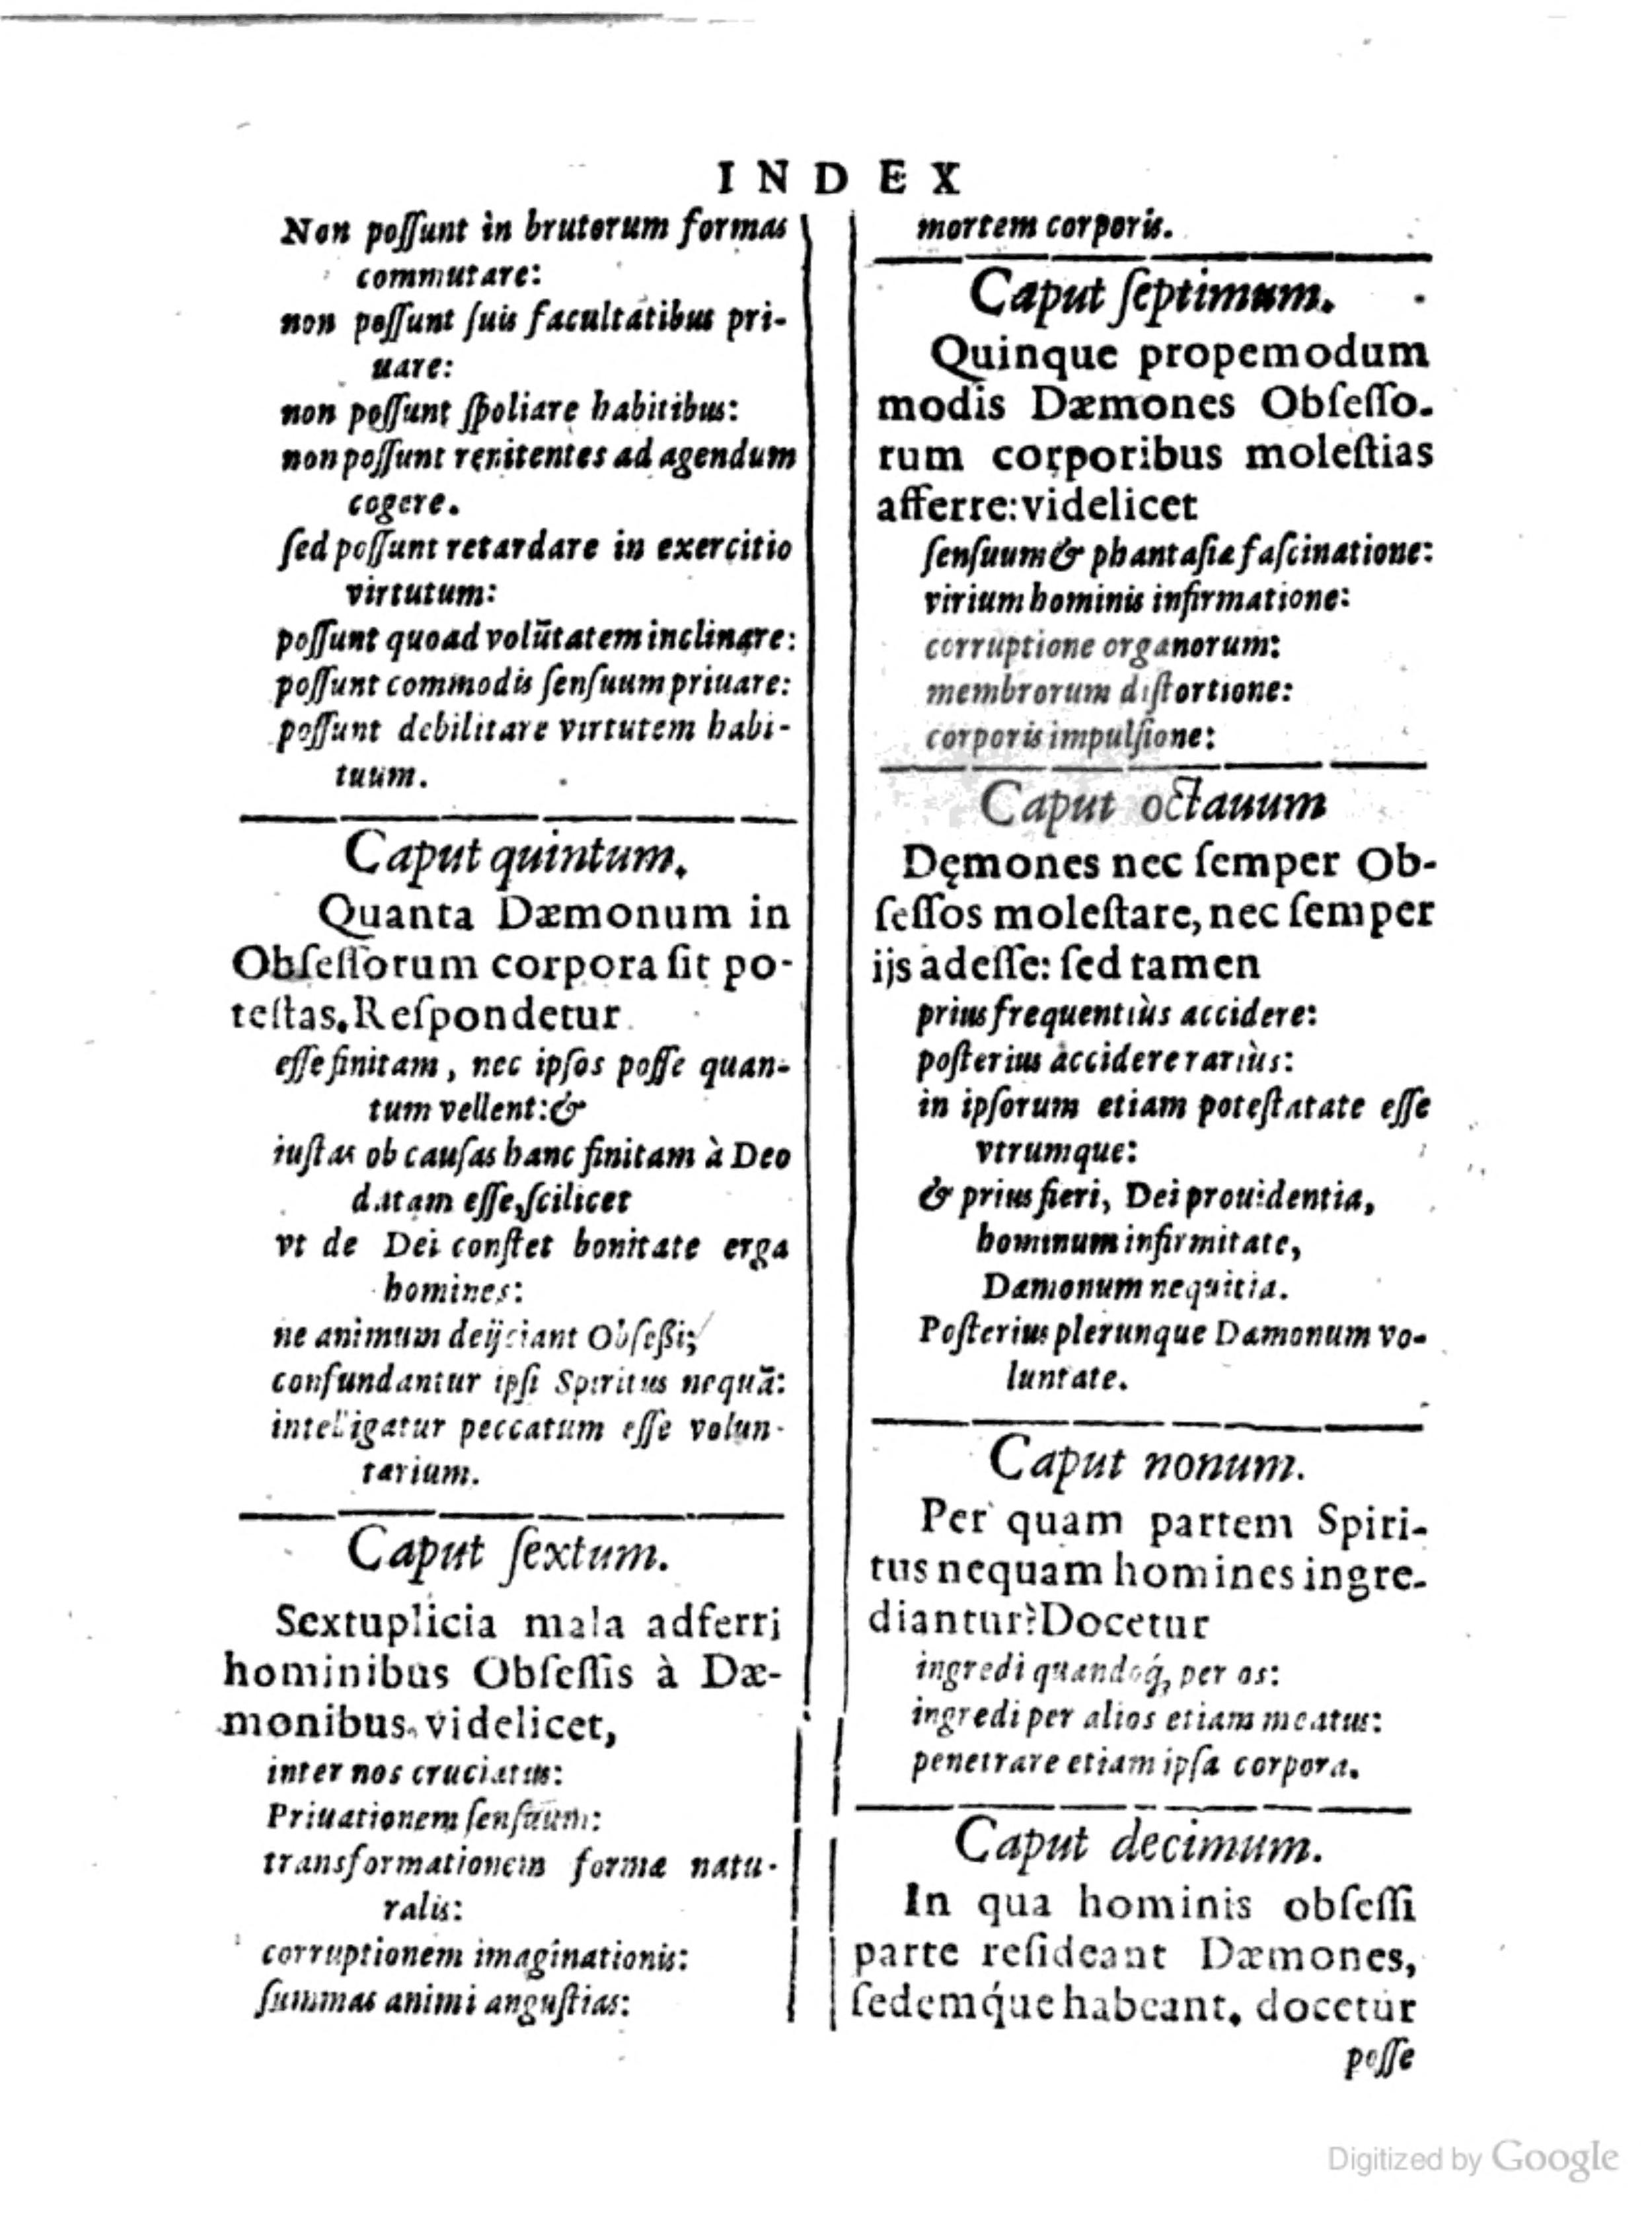 INDEX
Non poſſunt in brutorum formas
commutare:
non poſſunt ſuis facultatibus pri-
uare:
non poſſunt ſpoliare habitibus:
non poſſunt renitentes ad agendum
cogere.
ſed poſſunt retardare in exercitio
virtutum:
poſſunt quoad volūtatem inclinare:
poſſunt commodis ſenſuum priuare:
poſſunt debilitare virtutem habi-
tuum.
Caput quintum.
Quanta Dæmonum in
Obſeſſorum corpora ſit po-
teſtas. Reſpondetur
eſſe finitam, nec ipſos poſſe quan-
tum vellent: &
iuſtas ob cauſas hanc finitam à Deo
datam eſſe, ſcilicet
vt de Dei conſtet bonitate erga
homines:
ne animum deijciant Obſeßi;
confundantur ipſi Spiritus nequā:
intelligatur peccatum eſſe volun-
tarium.
Caput ſextum.
Sextuplicia mala adferri
hominibus Obſeſſis à Dæ-
monibus, videlicet,
internos cruciatus:
Priuationem ſenſuum:
transformationem formæ natu-
ralis:
corruptionem imaginationis:
ſummas animi anguſtias:
mortem corporis.
Caput ſeptimum.
Quinque propemodum
modis Dæmones Obſeſſo-
rum corporibus moleſtias
afferre: videlicet
ſenſuum & phantaſiæ faſcinatione:
virium hominis infirmatione:
corruptione organorum:
membrorum diſtortione:
corporis impulſione:
Caput octauum
Dęmones nec ſemper Ob-
ſeſſos moleſtare, nec ſemper
ijs adeſſe: ſed tamen
prius frequentiùs accidere:
poſterius accidere rariùs:
in ipſorum etiam poteſtatate eſſe
vtrumque:
& prius fieri, Dei prouidentia,
hominum infirmitate,
Dæmonum nequitia.
Poſterius plerunque Dæmonum vo-
luntate.
Caput nonum.
Per quam partem Spiri-
tus nequam homines ingre-
diantur? Docetur
ingredi quandoq́, per os:
ingredi per alios etiam meatus:
penetrare etiam ipſa corpora.
Caput decimum.
In qua hominis obſeſſi
parte reſideant Dæmones,
ſedemq́ue habeant. docetur
poſſe
Digitized by Google